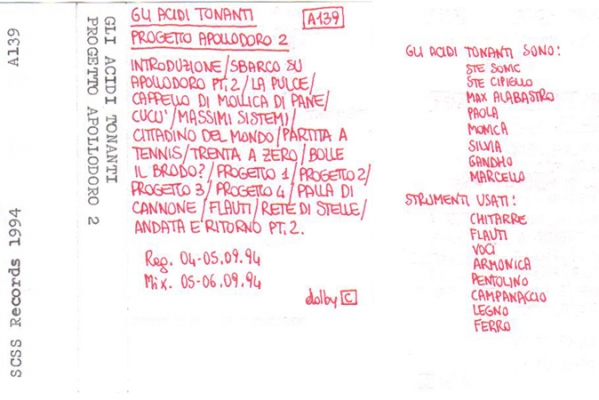 SCSS Records 1994 A139
GLI ACIDI TONANTI
PROGETTO APOLLODORO 2
GLI ACIDI TONANTI
A139
PROGETTO APOLLODORO 2
INTRODUZIONE/SBARCO SU
APOLLODORO PT.2/LA PULCE/
CAPPELLO DI MOLLICA DI PANE/
CUCU'/MASSIMI SISTEMI/
CITTADINO DEL MONDO/PARTITA A
TENNIS/TRENTA A ZERO/BOLLE
IL BRODO?/PROGETTO 1/PROGETTO 2/
PROGETTO 3/PROGETTO 4/PALLA DI
CANNONE/FLAUTI/RETE DI STELLE/
ANDATA E RITORNO PT.2.
Reg. 04-05.09.94
Mix. 05-06.09.94
dolby C
GLI ACIDI TONANTI SONO:
STE SONIC
STE CIPIELLO
MAX ALABASTRO
PAOLA
MONICA
SILVIA
GANDHO
MARCELLO
STRUMENTI USATI:
CHITARRE
FLAUTI
VOCI
ARMONICA
PENTOLINO
CAMPANACCIO
LEGNO
FERRO